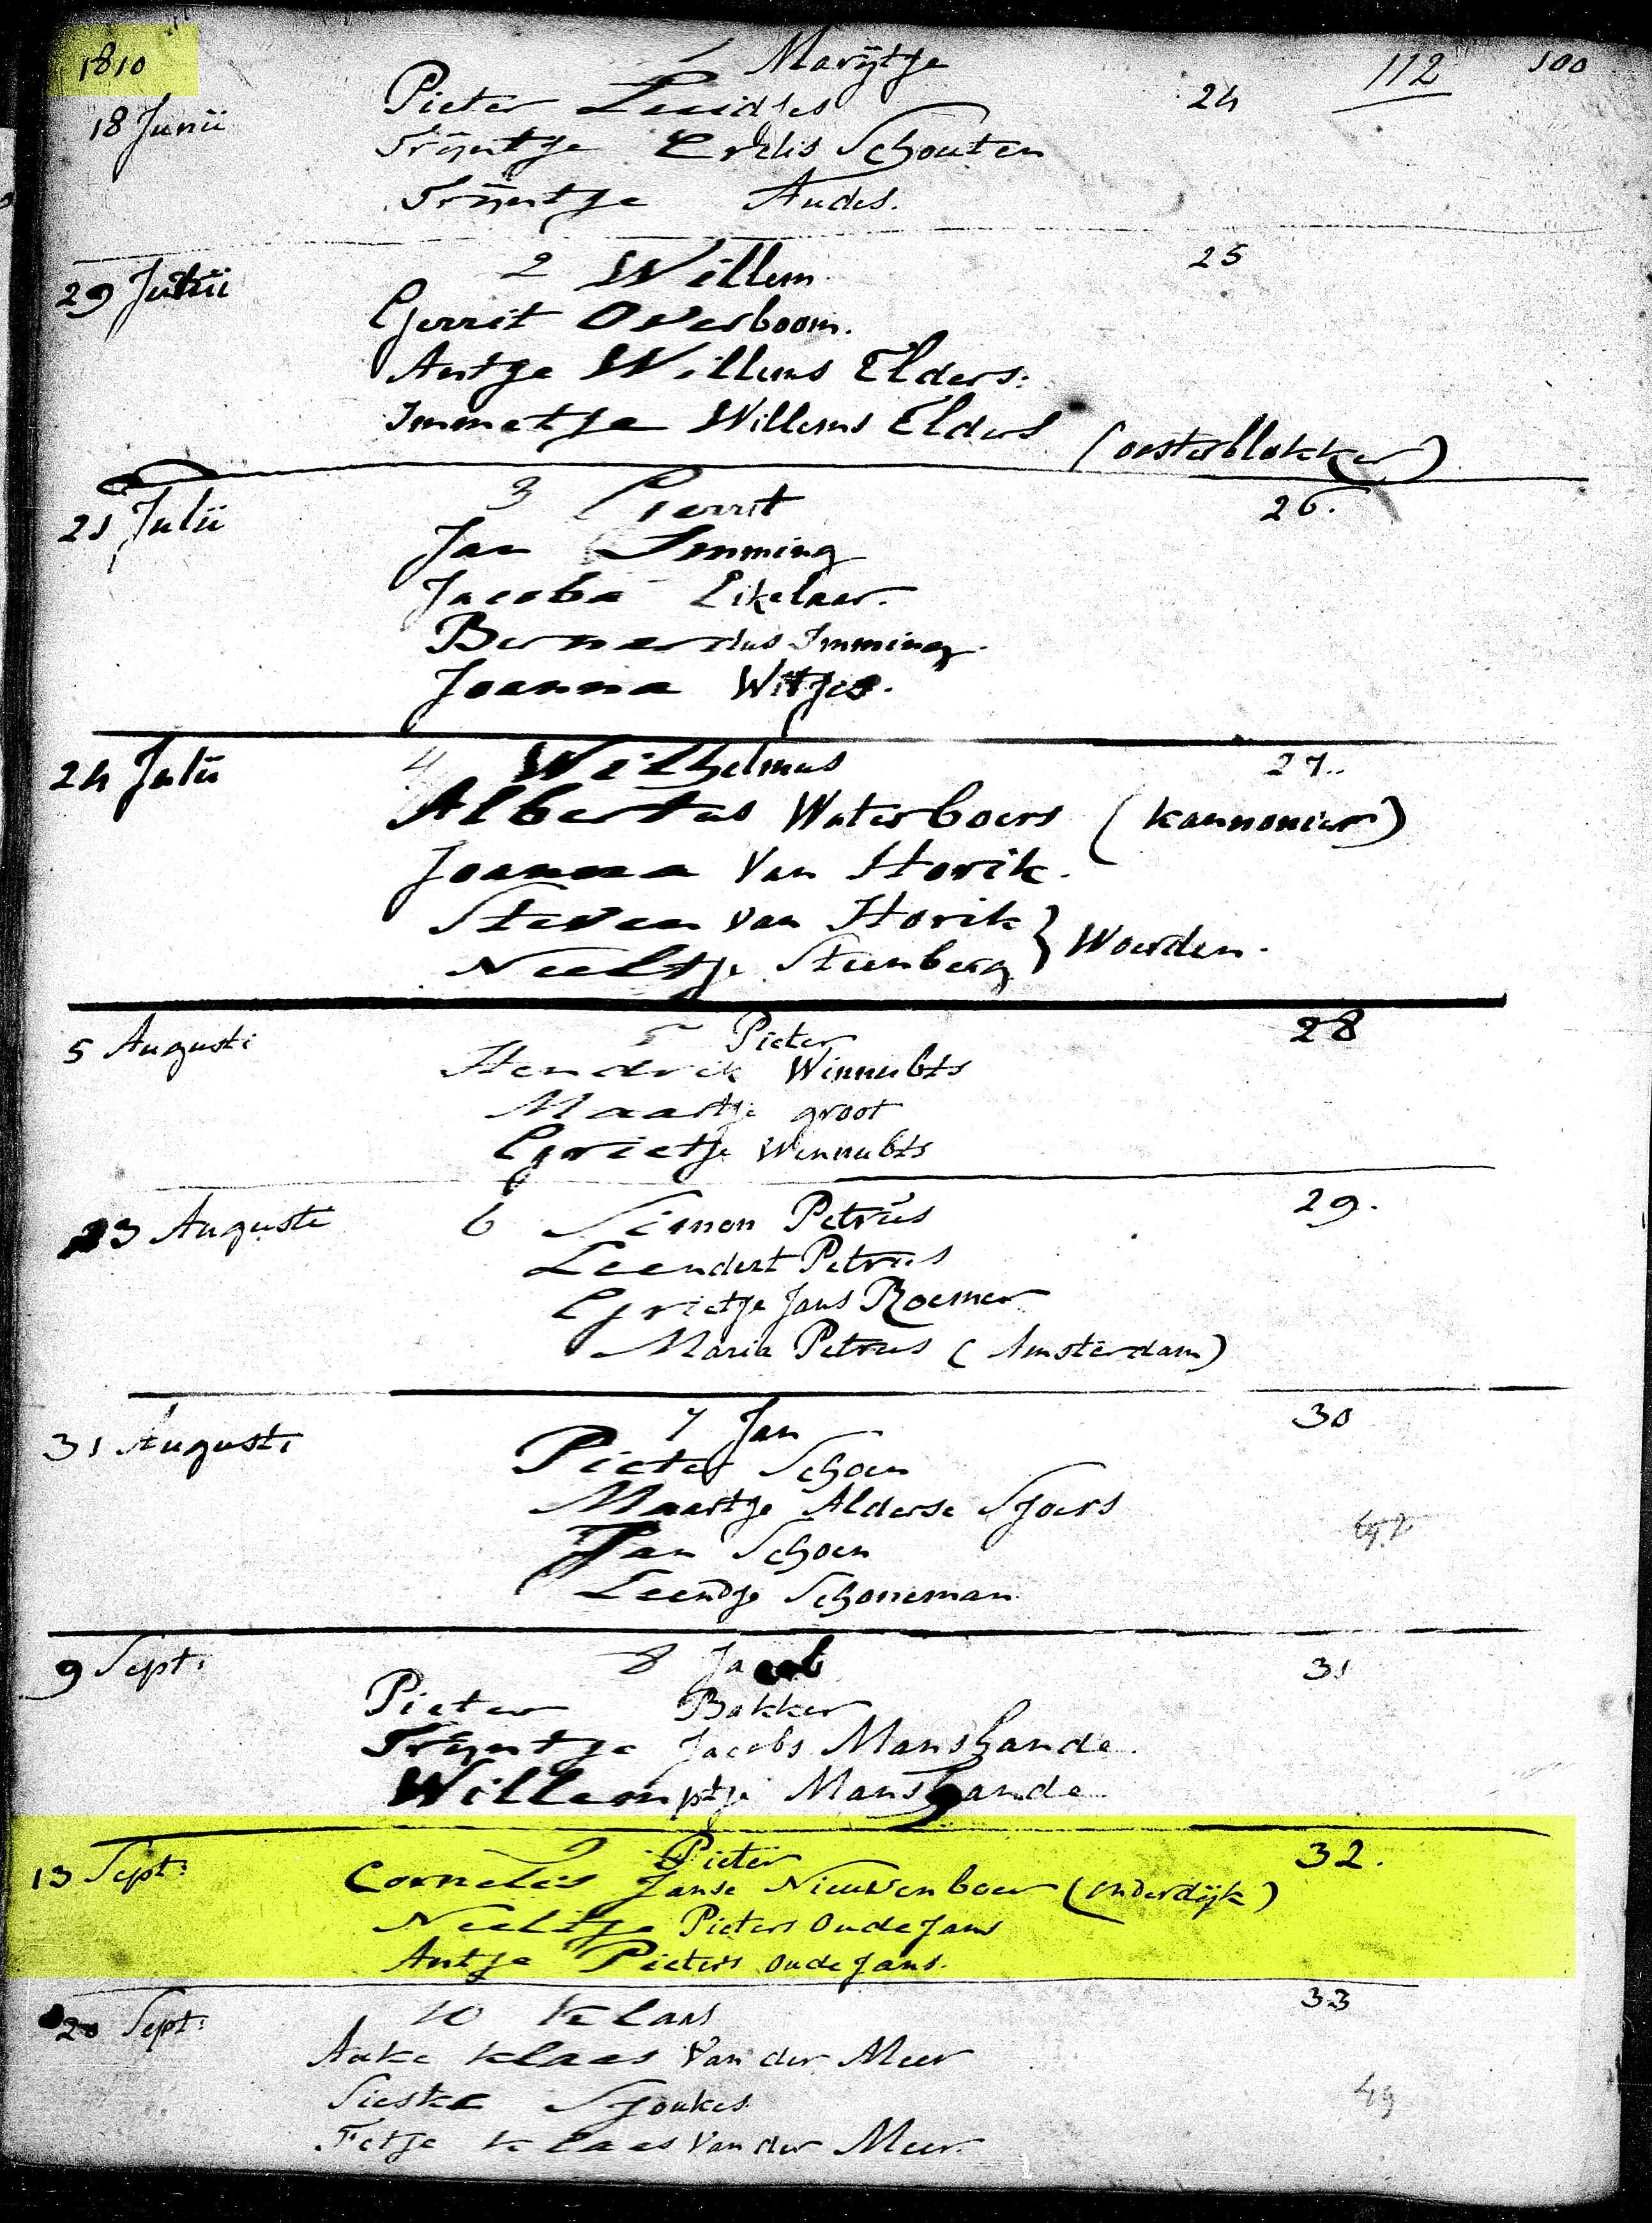 1810 1 Marijtje 112 100
18 Junii Pieter Luidjes 24
Trijntje Schouten
Trijntje Audes.
29 Julii 2 Willem 25
Gerrit Overboom.
Antje Willems Elders.
Immetje Willems Elders (oosterblokker)
21 Julii 3 Gerrit 26.
Jan Imming
Jacoba Eikelaar.
Bernardus Imming.
Joanna Witjes.
24 Julii 4 Wilhelmus 27.
Albertus Waterboers (kannonier)
Joanna Van Horik.
Steven van Horik } Woerden.
Neeltje Steenberg
5 Augusti 5 Pieter 28
Hendrik Winnubts
Maartje groot
Grietje Winnubts
23 Augusti 6 Simon Petrus 29.
Leendert Petrus
Grietje Jans Roemer
Maria Petrus (Amsterdam)
31 Augusti 7 Jan 30
Pieter Schoen
Maartje Alderse Sjoers
Jan Schoen
Leendje Schoneman
9 Sept: 8 Jacob 31
Pieter Bakker
Trijntje Jacobs Manshande.
Willemptje Manshande
13 Sept: 9 Pieter 32.
Cornelis Janse Nieuwenboer (onderdijk)
Neeltje Pieters Oudejans
Antje Pieters oudejans.
20 Sept: 10 Klaas 33
Auke Klaas Van der Meer
Sieske Sjoukes 49
Fetje Klaas Van der Meer.